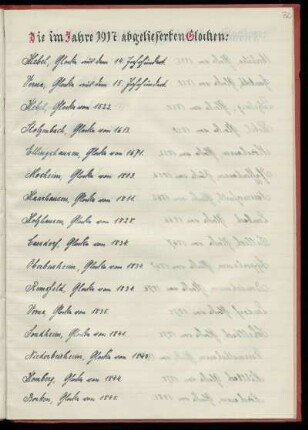 Die im Jahre 1917 abgelieferten Glocken:
Hebel, Glocke aus dem 14. Jahrhundert
Verna, Glocke aus dem 15. Jahrhundert
Hebel, Glocke von 1522.
Stolzenbach, Glocke von 1613.
Ellingshausen, Glocke von 1671.
Glocke von 1803.
Harshausen, Glocke von 1811.
Holzhausen, Glocke von 1828.
Cassdorf, Glocke von 1834.
Oberbeisheim, Glocke von 1834.
Remsfeld, Glocke von 1834.
Verna, Glocke von 1835.
Sondheim, Glocke von 1841.
Niederbeisheim, Glocke von 1841.
Homberg, Glocke von 1844.
Borken, Glocke von